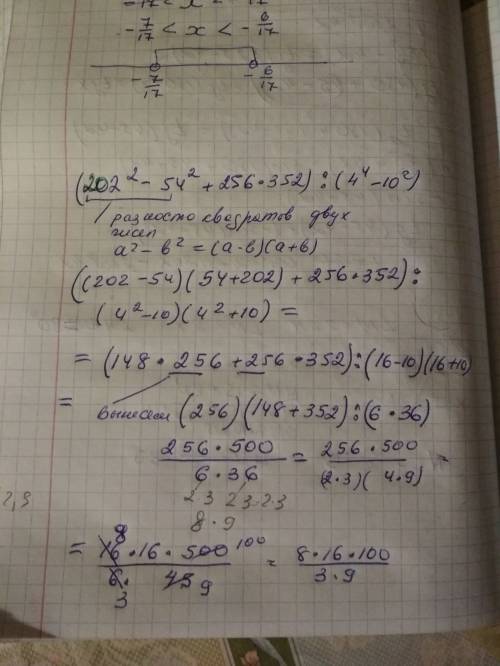 -17 < x < -17
-7/17 < x < -6/17
-7/17 -6/17
(202² - 54² + 256 · 352) : (4⁴ - 10²)
разность квадратов двух
чисел
a² - b² = (a - b)(a + b)
((202 - 54)(54 + 202) + 256 · 352) :
(4² - 10)(4² + 10) =
= (148 · 256 + 256 · 352) : (16 - 10)(16 + 10)
= выносим (256)(148 + 352) : (6 · 36)
256 · 500 / 6 · 36 = 256 · 500 / (2 · 3)(4 · 9) =
2·3 2·3·2·3
8 · 9
= 16 · 16 · 500 / 6 · 45 = 8 · 16 · 100 / 3 · 9
8 100
3 9